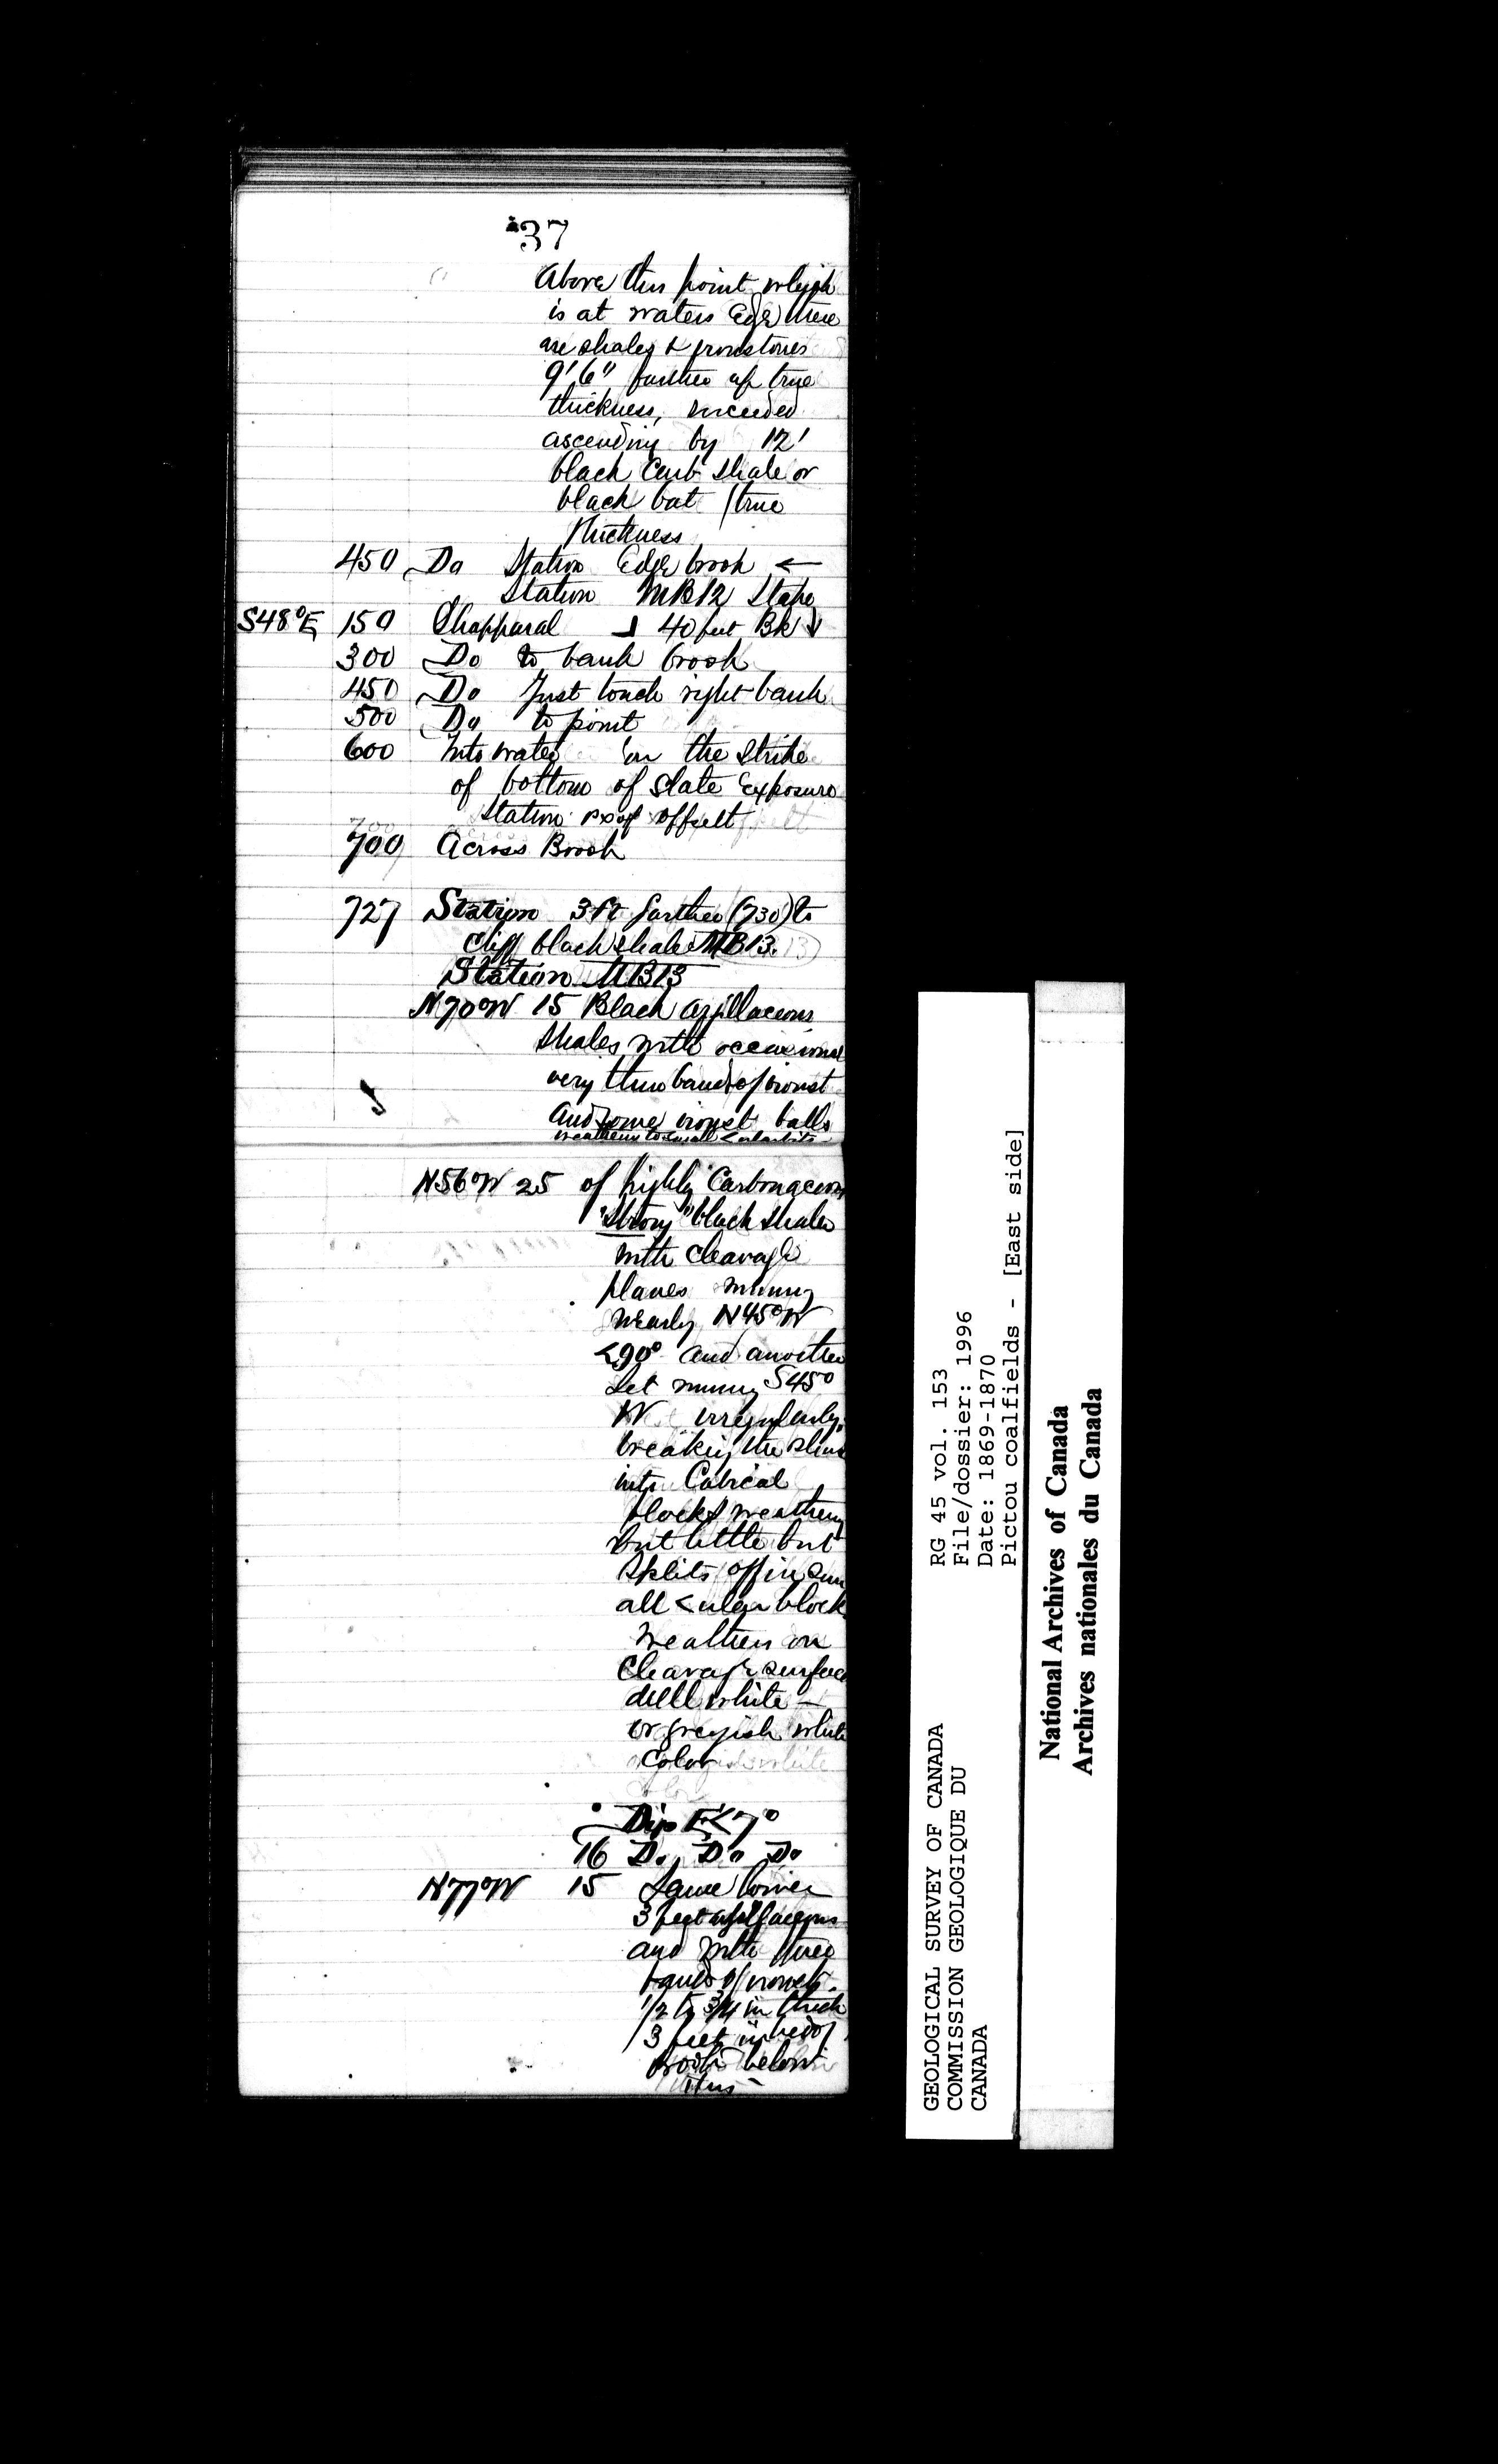 37
Above this point which
is at waters Edge there
are shales & ironstones
9'6" further up true
thickness, succeeded
ascending by 12'
black Carb shale or
black bat (true
thickness
450 Do Station Edge brook ←
Station MB12 Stake
S48°E 150 Chapparal 40 feet Bk
300 Do to bank brook
450 Do Just touch right bank
500 Do to point
600 Into water on the Strike
of bottom of slate Exposure
Station offsett
700 Across Brook
727 Station 3 ft farther (730) to
Cliff black shale MB13.
Station MB13
N70°W 15 Black argillaceous
shales with occasional
very thin bands of ironst
and some ironst balls
weathers to small <ular bits
N56°W 25 of highly Carbonaceous
"Strong" black shales
with cleavage
planes running
nearly N45°W
<90° and another
set running S45°
W irregularly
breaking the shale
into Cubical
blocks weathering
but little but
splits off in
all <ular blocks
Weathers on
Cleavage surface
dull white —
or greyish white
Color
Dip E<7°
16 Do Do Do
N77°W 15 Same lower
3 feet argillaceous
and with three
bands of ironst.
1/2 to 3/4 in thick
3 feet in bed of
Brook below
this
GEOLOGICAL SURVEY OF CANADA
COMMISSION GEOLOGIQUE DU
CANADA
RG 45 vol. 153
File/dossier: 1996
Date: 1869-1870
Pictou coalfields - [East side]
National Archives of Canada
Archives nationales du Canada